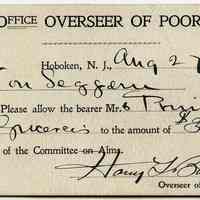 OFFICE OVERSEER OF POOR
Hoboken, N. J., Aug 2
Von Seggern
Please allow the bearer Mrs
Groceries to the amount of $
of the Committee on Alms.
Harry L.
Overseer of